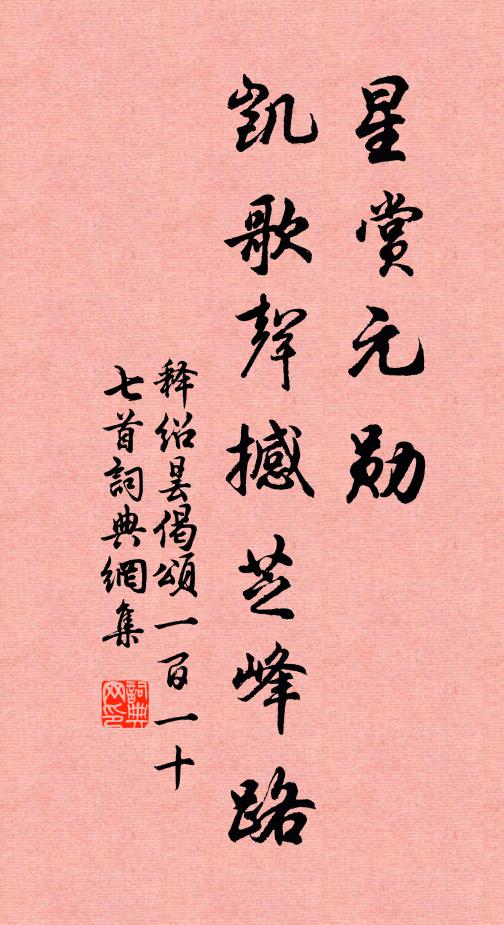 星赏元勋
凯歌聲撼芝峰路
释绍昙偈頌一百一十
七首詞典網集
詞典网印